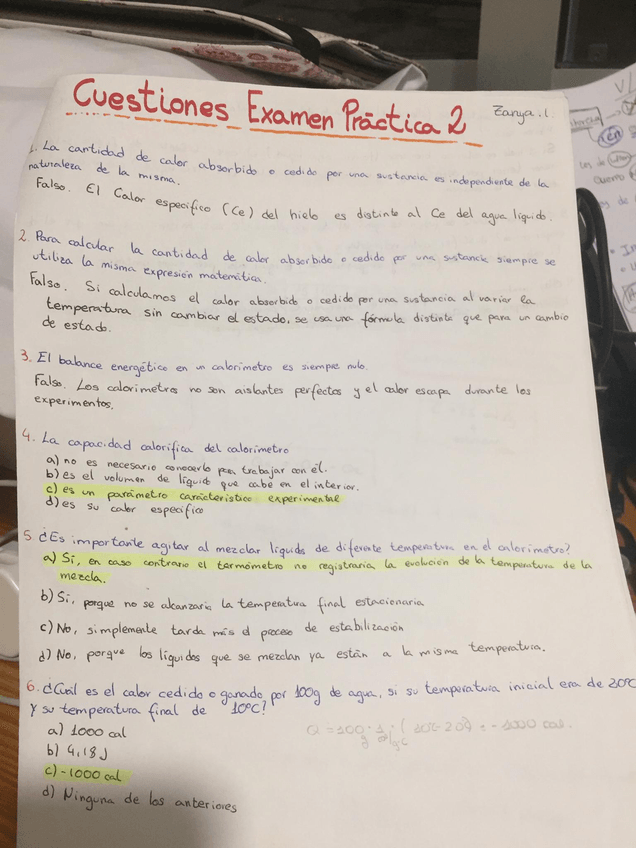 Cuestiones Examen Práctica 2
Zanya. l.
1. La cantidad de calor absorbido o cedido por una sustancia es independiente de la
naturaleza de la misma.
Falso. El Calor específico (Ce) del hielo es distinto al Ce del agua líquido.
2. Para calcular la cantidad de calor absorbido o cedido por una sustancia siempre se
utiliza la misma expresión matemática.
Falso. Si calculamos el calor absorbido o cedido por una sustancia al variar la
temperatura sin cambiar el estado, se usa una fórmula distinta que para un cambio
de estado.
3. El balance energético en un calorímetro es siempre nulo.
Falso. Los calorímetros no son aislantes perfectos y el calor escapa durante los
experimentos.
4. La capacidad calorífica del calorímetro
a) no es necesario conocerlo para trabajar con él.
b) es el volumen de líquido que cabe en el interior.
c) es un parámetro característico experimental
d) es su calor específico
5 ¿Es importante agitar al mezclar líquids de diferente temperatura en el calorímetro?
a) Sí, en caso contrario el termómetro no registraría la evolución de la temperatura de la
mezcla.
b) Sí, porque no se alcanzaría la temperatura final estacionaria
c) No, simplemente tarda más el proceso de estabilización
d) No, porque los líquidos que se mezclan ya están a la misma temperatura.
6. ¿Cuál es el calor cedido o ganado por 100g de agua, si su temperatura inicial era de 20ºC
y su temperatura final de 10ºC?
a) 1000 cal
b) 4,18 J
c) -1000 cal
d) Ninguna de las anteriores